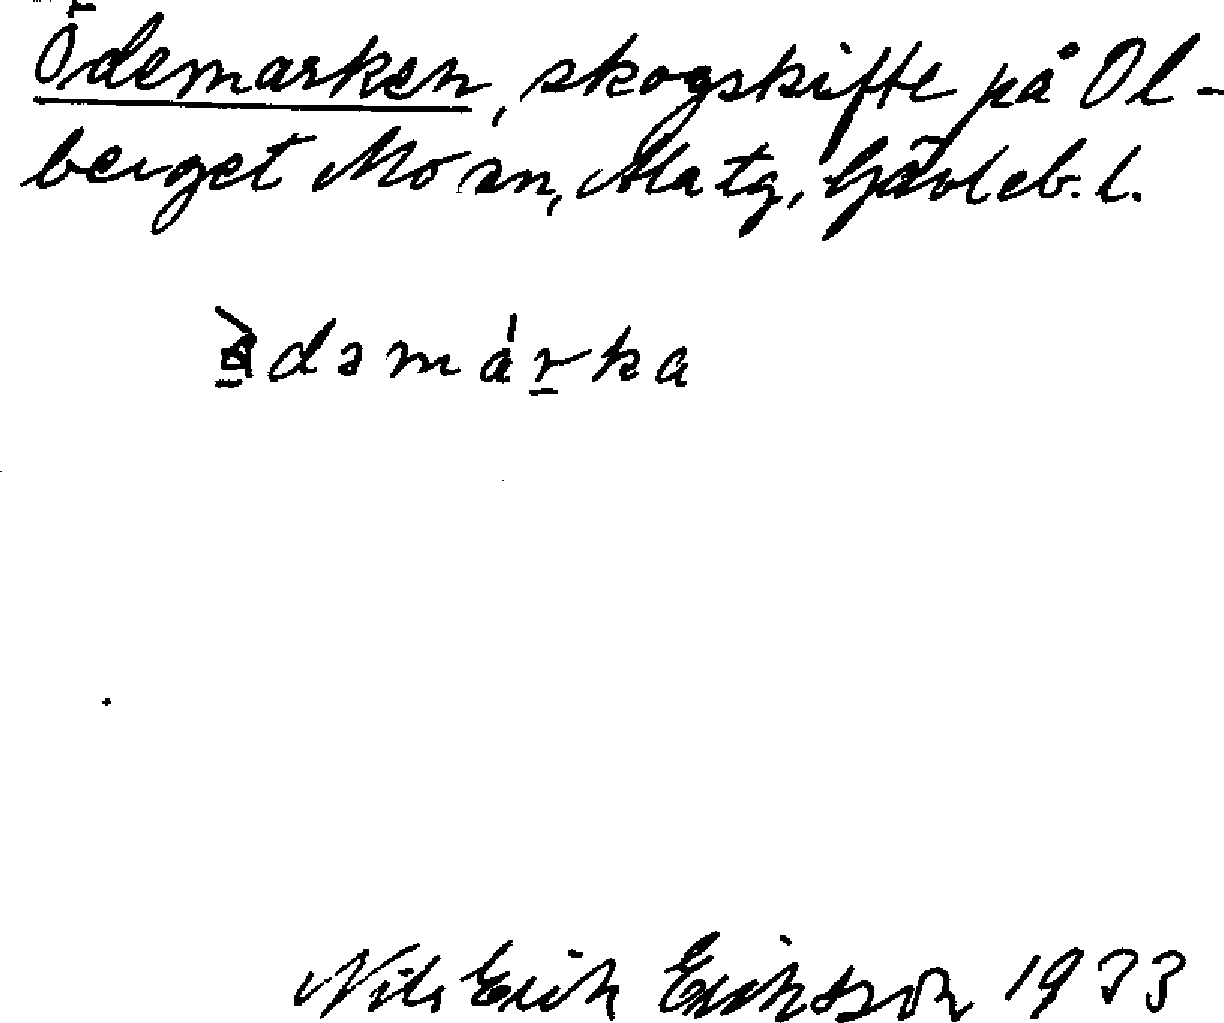 Ödemarken, skogskifte på Ol-
berget Mo sn, Alatg, Gävleb. l.
Nils Erik Eriksson 1933